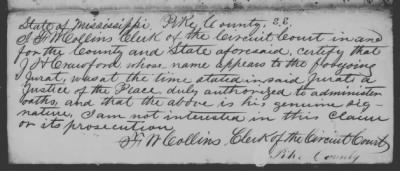 State of Mississippi, Pike County, S.S.
I F W Collins Clerk of the Circuit Court in and
for the County and State aforesaid, certify that
J W Crawford whose name appears to the foregoing
Jurat, was at the time stated in said Jurat a
Justice of the Peace duly authorized to administer
oaths, and that the above is his genuine sig-
nature, I am not interested in this claim
or its prosecution
F W Collins, Clerk of the Circuit Court
Pike County